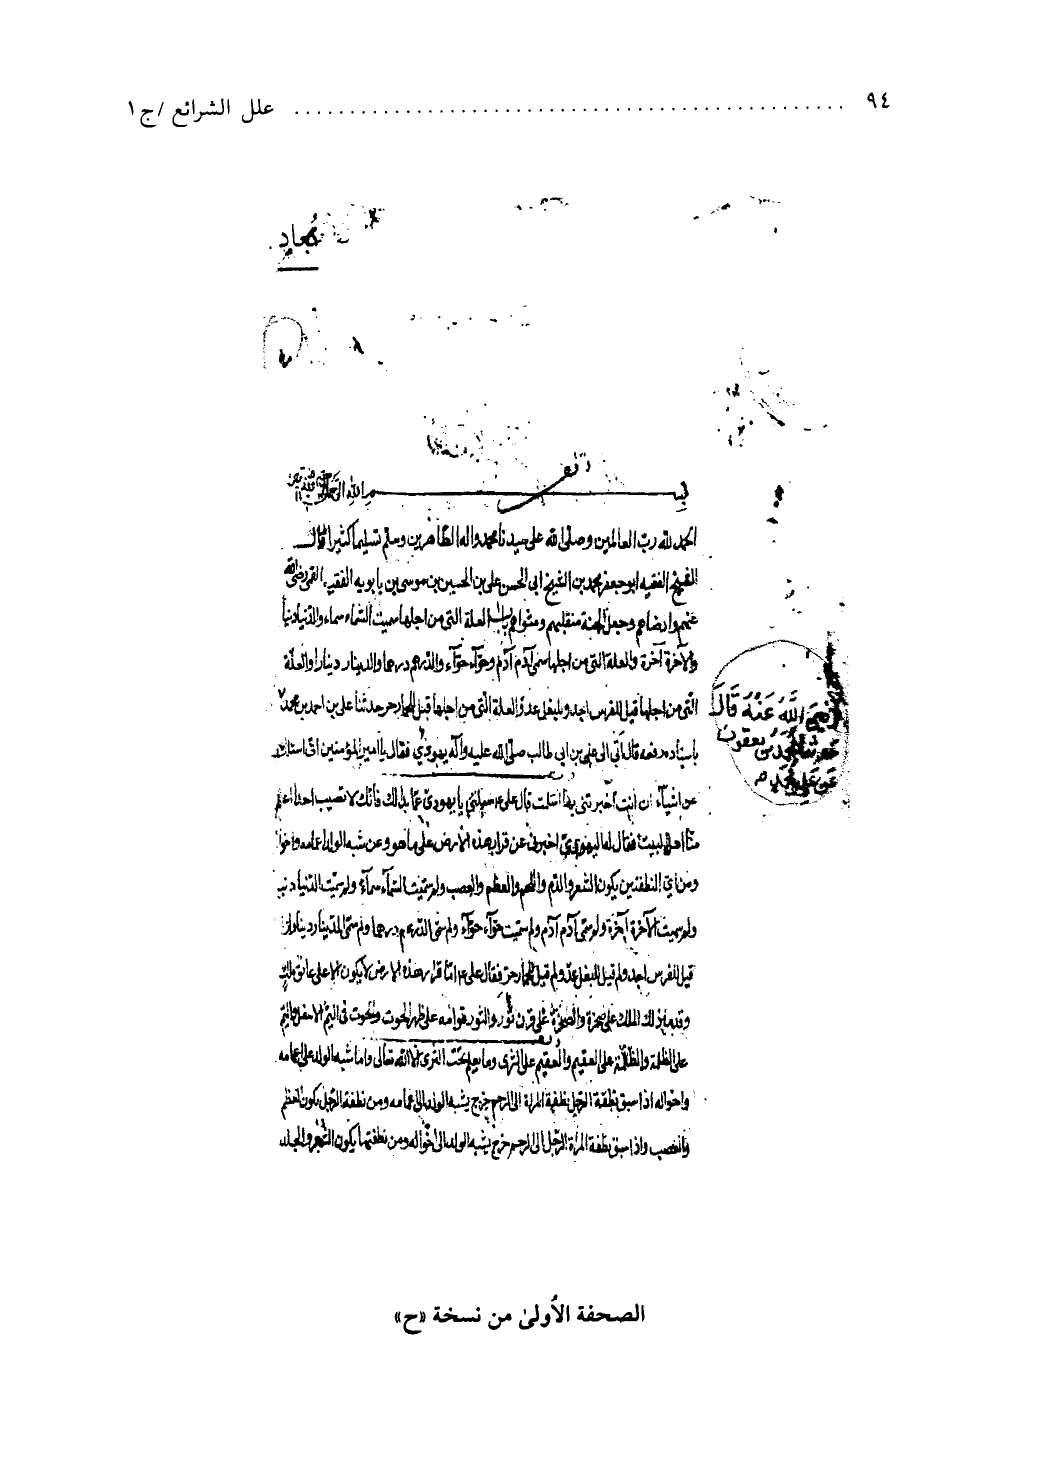 ٩٤ ................................................ علل الشرائع /ج ١
بسم الله الرحمن
الحمد لله رب العالمين وصلى الله على سيدنا محمد واله الطاهرين وسلم تسليما كثيرا قال
الشيخ الفقيه ابو جعفر محمد بن الشيخ ابى الحسن على بن الحسين بن موسى بن بابويه الفقيه القمى رضى الله
عنهم وارضاهم وجعل الجنة منقلبهم ومثواهم باب العلة التى من اجلها سميت السماء سماء والدنيا دنيا
والآخرة آخرة والعلة التى من اجلها سمى آدم آدم وحوآء حوآء والدرهم درهما والدينار دينارا والعلة
التى من اجلها قيل للفرس اجد وللبغل عد والعلة التى من اجلها قيل للحمار حر حدثنا على بن احمد بن محمد
باسناده رفعه قال اتى الى على بن ابى طالب صلى الله عليه وآله يهودى فقال يا امير المؤمنين انى اسئلك
عن اشيآء ان انت اخبرتنى بها اسلمت قال على ع سلنى يا يهودى عما بدا لك فانك لا تصيب احدا اعلم
منا اهل البيت فقال له اليهودى اخبرنى عن قرار هذه الارض على ما هو وعن شبه الولد اعمامه واخوا
ومن اى النطفتين يكون الشعر والدم واللحم والعظم والعصب ولم سميت السمآء سمآء ولم سميت الدنيا دنيا
ولم سميت الآخرة آخرة ولم سمى آدم آدم ولم سميت حوآء حوآء ولم سمى الدرهم درهما ولم سمى الدينار دينارا ولم
قيل للفرس اجد ولم قيل للبغل عد ولم قيل للحمار حر فقال على ع اما قرار هذه الارض لا يكون الا على عاتق ملك
وقدما ذلك الملك على صخرة والصخرة على قرن ثور والثور قوائمه على ظهر الحوت والحوت فى اليم الاسفل واليم
على الظلمة والظلمة على العقيم والعقيم على الثرى وما يعلم تحت الثرى الا الله تعالى واما شبه الولد اعمامه
واخواله اذا سبق نطفة الرجل نطفة المراة الى الرحم خرج يشبه الولد الى اعمامه ومن نطفة الرجل يكون العظم
والعصب واذا سبق نطفة المراة الرجل الى الرحم خرج يشبه الولد الى اخواله ومن نطفتها يكون الشعر والجلد
رضى اللَّه عَنْهُ قَالَ
حدثنا محمد بن يعقوب
عن على بن محمد
الصحفة الأُولىٰ من نسخة «ح»